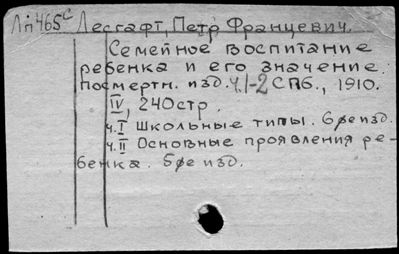 Лп465с Лесгафт, Петр Францевич.
Семейное воспитание
ребенка и его значение.
Посмертн. изд. ч.1-2 СПб., 1910.
IV, 240стр.
ч.I Школьные типы. 6ое изд.
ч.II Основные проявления ре-
бенка. 5ое изд.